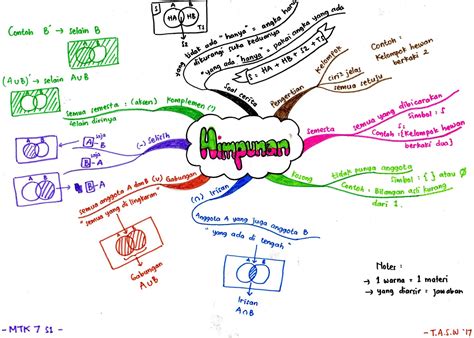 Himpunan
Pengertian
Kelompok
ciri jelas
semua setuju
Contoh :
Kelompok hewan
berkaki 2
Semesta
semua yang dibicarakan
Simbol : S
Contoh : {Kelompok hewan
berkaki dua}
Kosong
tidak punya anggota
Simbol : { } atau ∅
Contoh : Bilangan asli kurang
dari 1.
(∩) Irisan
Anggota A yang juga anggota B
"yang ada di tengah"
A B
Irisan
A∩B
(∪) Gabungan
semua anggota A dan B
"semua yang di lingkaran"
A B
Gabungan
A∪B
(-) Selisih
A saja
A-B
B saja
B-A
A B
Komplemen (')
semua semesta : (akan)
selain dirinya
Contoh B' → Selain B
(A∪B)' → selain A∪B
A B
Soal cerita
tidak ada "hanya" = angka harus
dikurangi suka keduanya
yang ada "hanya" = pakai angka yang ada
S = HA + HB + S2 + TS
A B
HA HB
TS
Notes :
→ 1 warna = 1 materi
→ yang diarsir = jawaban
- MTK 7 S1 -
- T.A.S.N '17